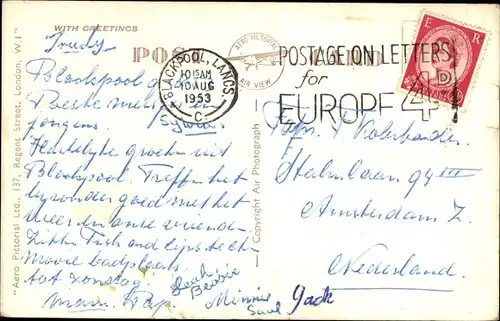 WITH GREETINGS
Trudy
POS
Blackpool
Beste
jongens.
Sylvia
Hartelijke groeten uit
Blackpool. Treffen het
bijzonder goed met het
weer en onze vrienden.
Zitten Fish and Chips te eten
Mooie badplaats.
tot zondag.
Mam. Pap.
Leah,
Bessie
Minnie
Saul
Jack
BLACKPOOL, LANCS.
10 15AM
10 AUG
1953
C
AERO PICTORIAL
AIR VIEW
POSTAGE ON LETTERS
for
EUROPE 4D
E R
Stalinlaan 94 III
Amsterdam Z.
Nederland.
"Aero Pictorial Ltd., 137, Regent Street, London, W.1"
Copyright Air Photograph